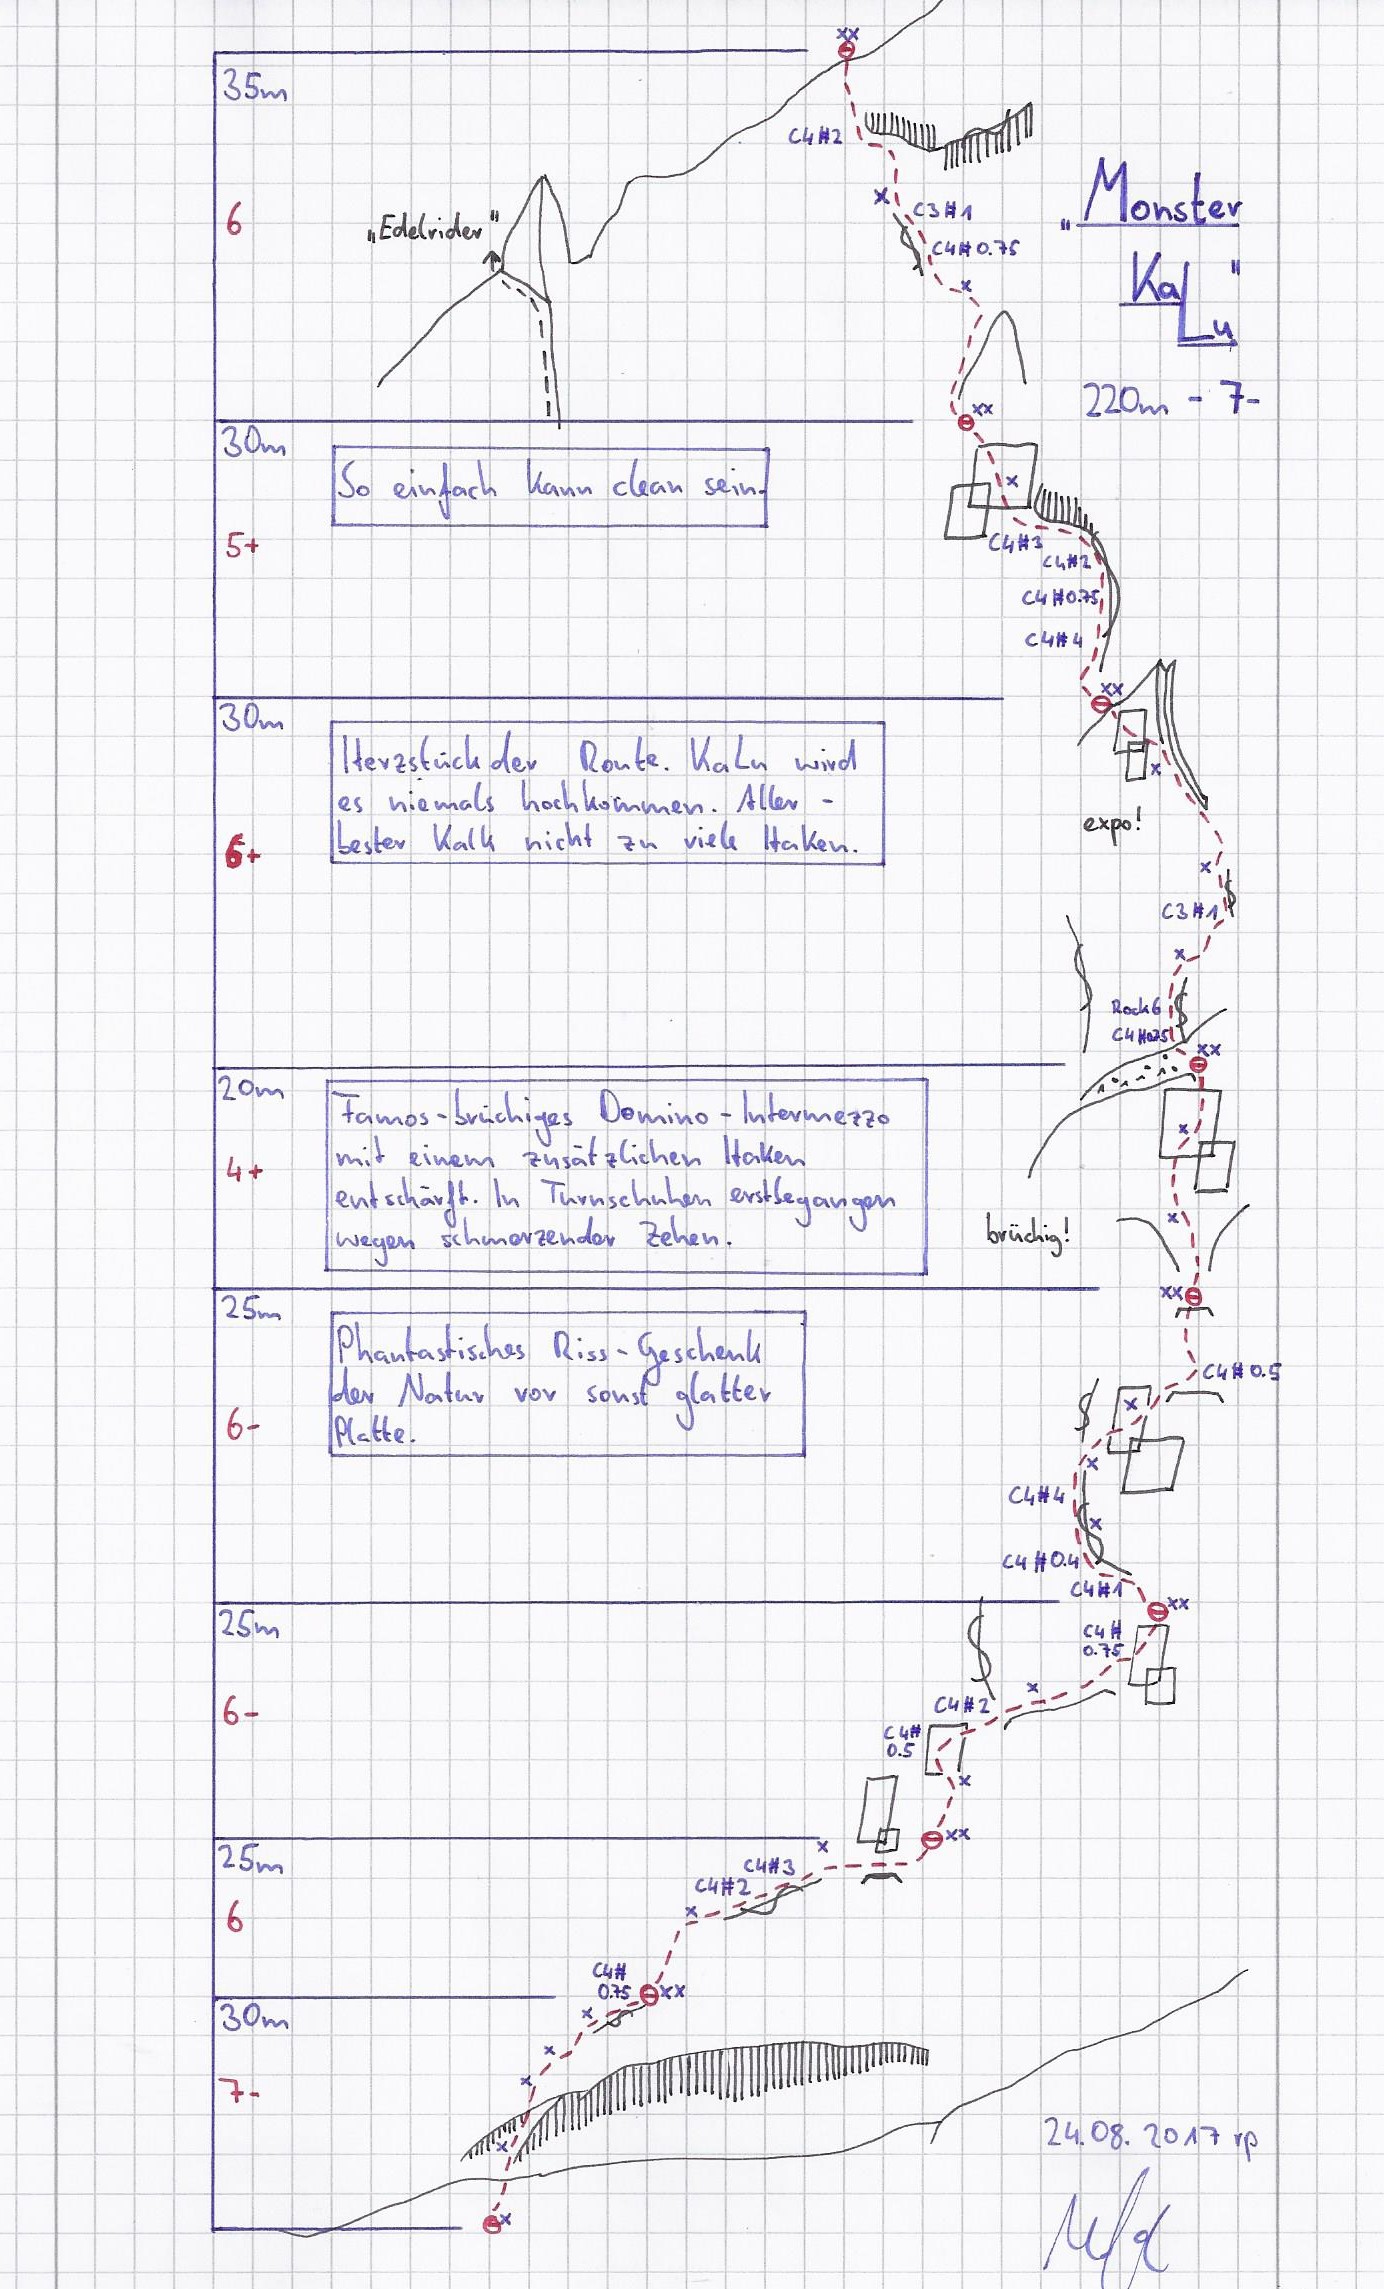 35m
xx
C4#2
6
„Edelrider"
x
C3#1
C4#0.75
x
„Monster
KaLu"
220m - 7-
xx
30m
So einfach kann clean sein.
x
5+
C4#3
C4#2
C4#0.75
C4#4
xx
30m
Herzstück der Route. KaLu wird
es niemals hochkommen. Aller-
bester Kalk nicht zu viele Haken.
x
expo!
6+
x
C3#1
x
Rock6
C4#0.75
xx
20m
Famos-brüchiges Domino-Intermezzo
mit einem zusätzlichen Haken
entschärft. In Turnschuhen erstbegangen
wegen schmerzender Zehen.
x
4+
x
brüchig!
xx
25m
Phantastisches Riss-Geschenk
der Natur vor sonst glatter
Platte.
C4#0.5
x
6-
x
C4#4
x
C4#0.4
C4#1
xx
25m
C4#
0.75
x
C4#2
6-
C4#
0.5
x
xx
25m
x
C4#3
C4#2
x
6
C4#
0.75
xx
30m
x
x
x
7-
x
24.08.2017 rp
x